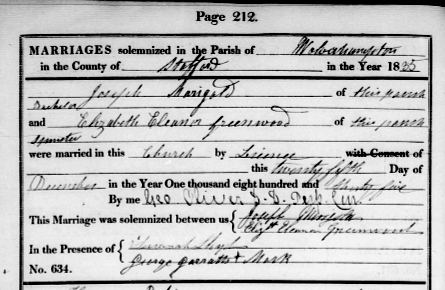 Page 212.
MARRIAGES solemnized in the Parish of Wolverhampton
in the County of Stafford in the Year 1835
Joseph Marigold of this parish
Bachelor
and Elizabeth Eleanor Greenwood of this parish
Spinster
were married in this Church by Licence with Consent of
this twenty fifth Day of
December in the Year One thousand eight hundred and thirty five
By me Geo Oliver D. D. Perp. Cur.
This Marriage was solemnized between us Joseph Marigold
Elizth Eleanor Greenwood
In the Presence of
George Garratt + Mark
No. 634.